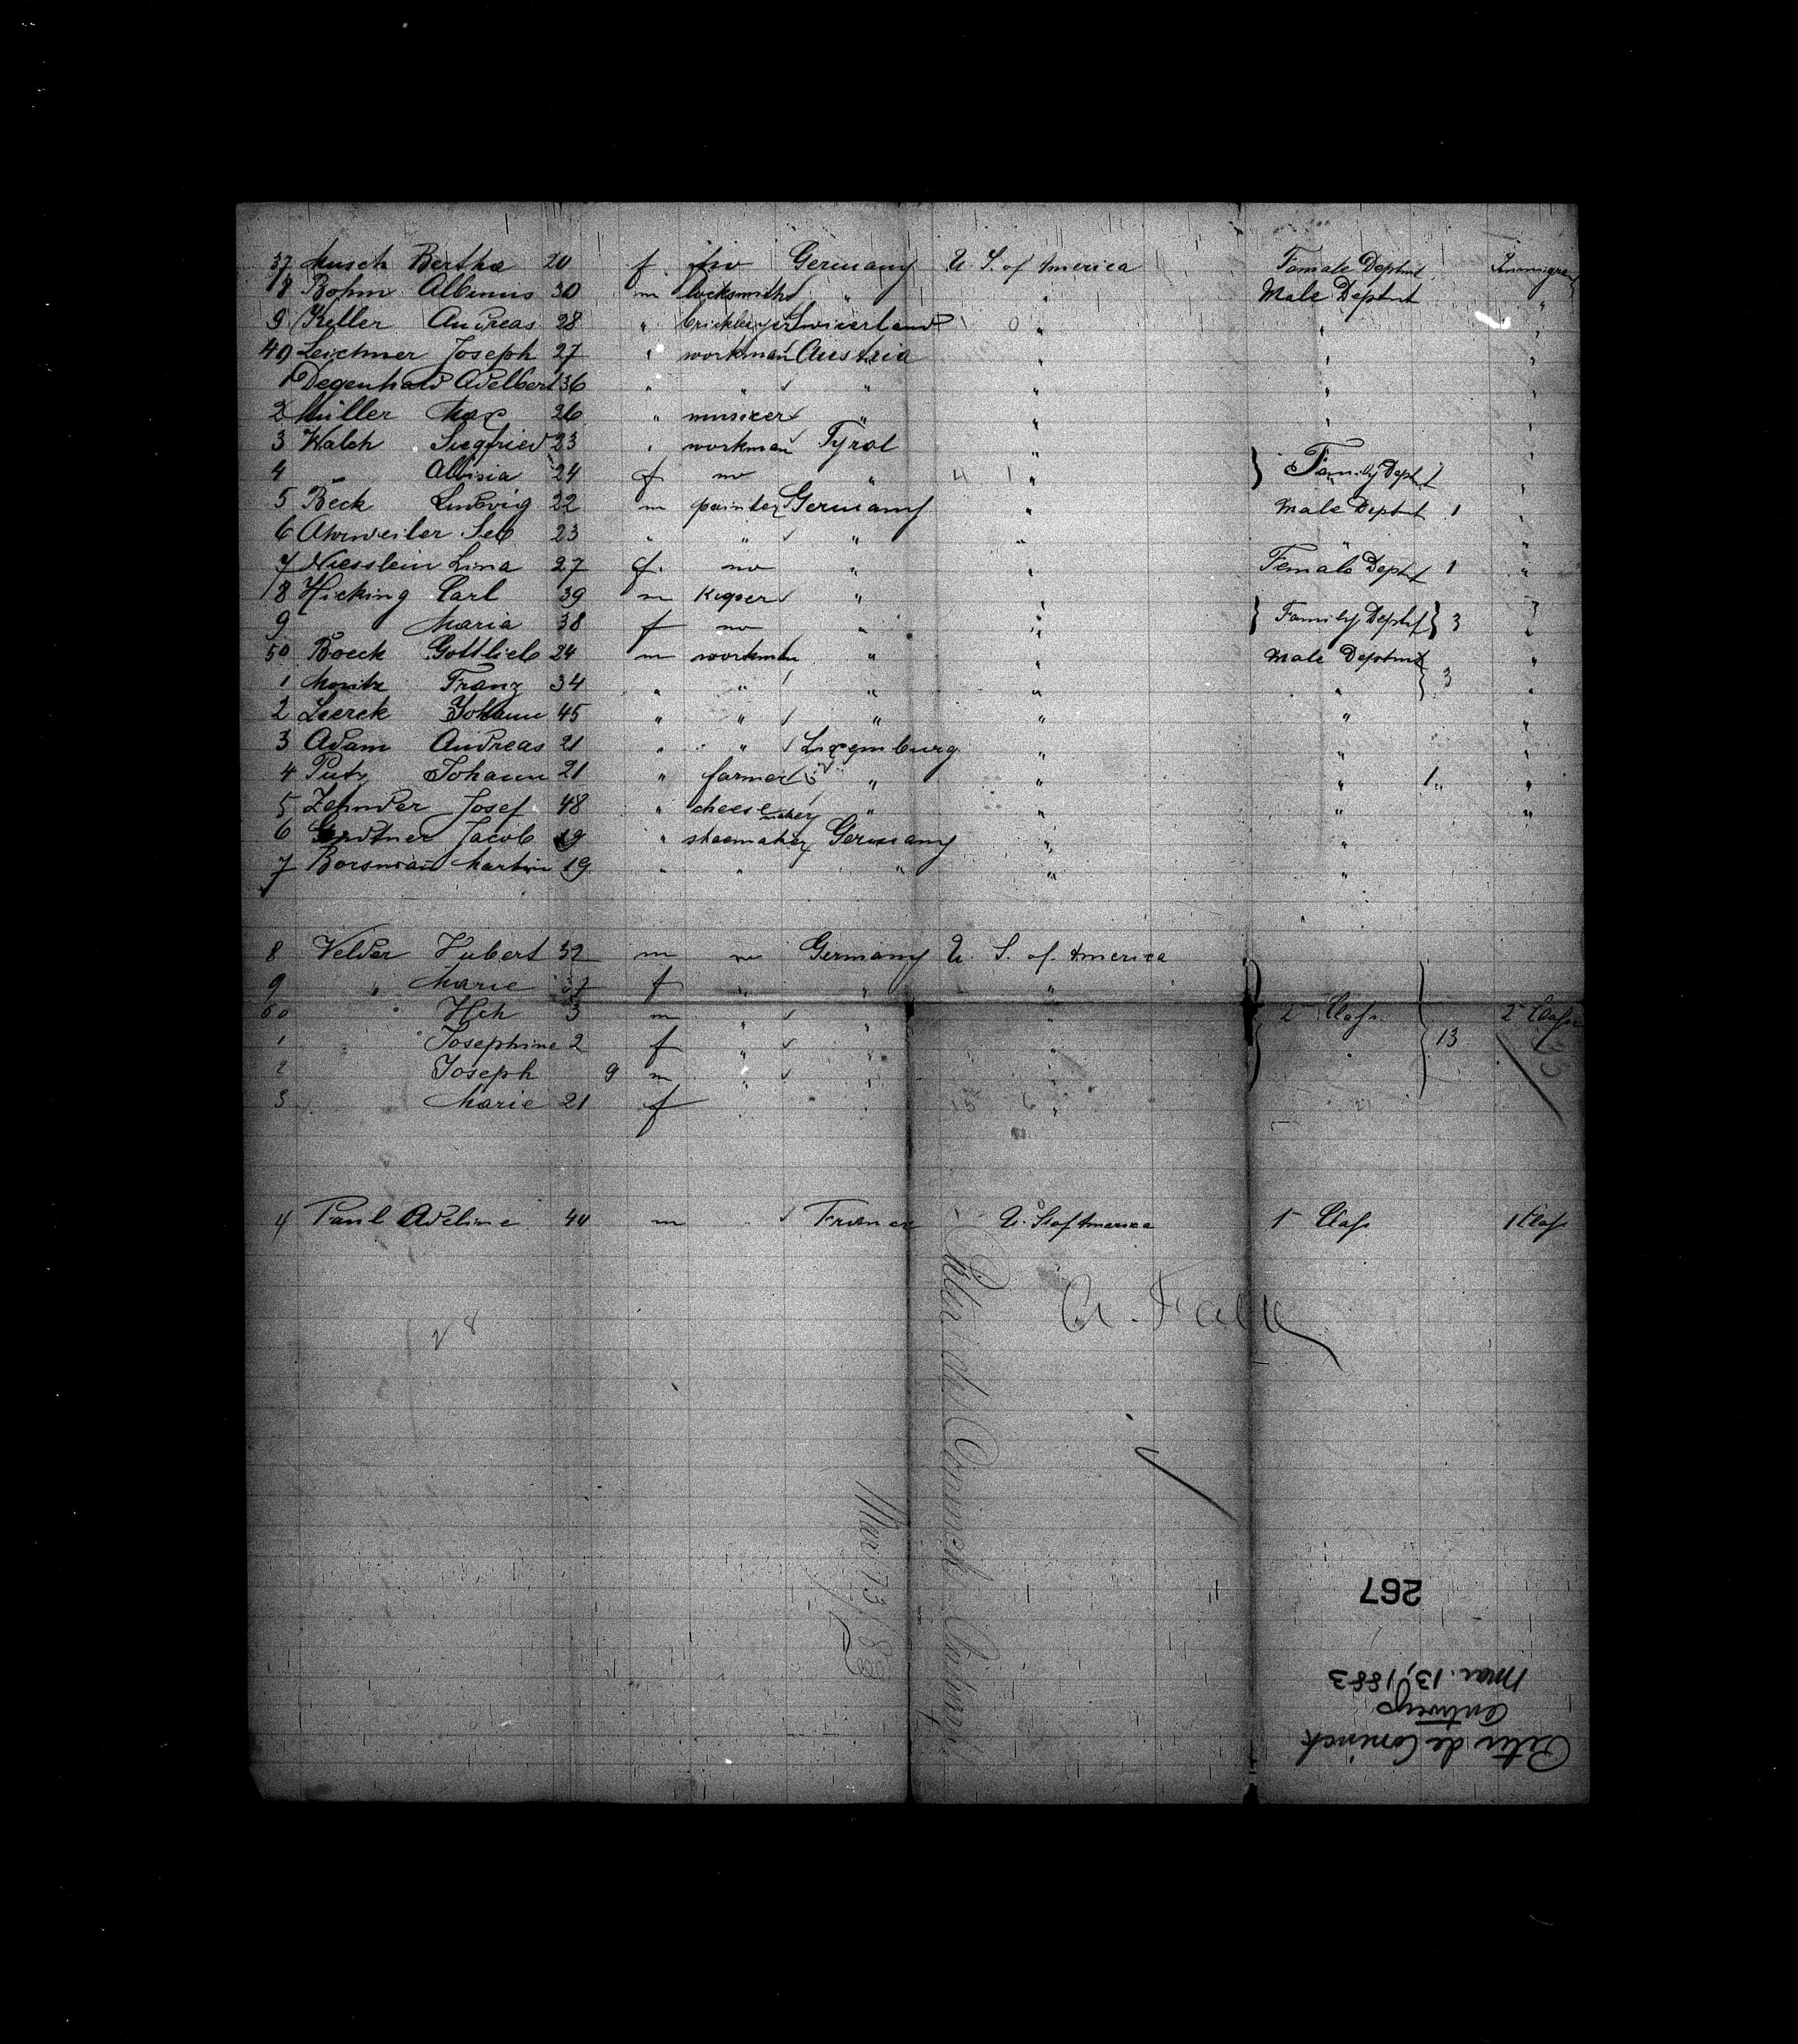 37 Musch Bertha 20 f. no Germany U. S. of America Female Deptmt Immigrant
8 Bohm Albinus 30 m locksmith " " Male Deptmt "
9 Keller Andreas 28 " Switzerland " " "
40 Leichner Joseph 27 " workman Austria " " "
1 Degenhard Adelbert 36 " " " " " "
2 Müller Max 26 " musicer " " " "
3 Walch Siegfried 23 " workman Tyrol " "
4 " Albinia 24 f no " " Family Dept "
5 Beck Ludwig 22 m painter Germany " Male Deptmt 1 "
6 Ahrweiler Seb 23 " " " " " "
7 Niesslein Lina 27 f. no " " Female Deptmt 1 "
8 Hicking Carl 39 m " " "
9 Maria 38 f no " " Family Deptmt 3 "
50 Boeck Gottlieb 24 m workman " " Male Deptmt "
1 Moritz Franz 34 " " " " " 3 "
2 Leerck Johann 45 " " " " " "
3 Adam Andreas 21 " " Luxemburg " " "
4 Putz Johann 21 " farmer " " " 1 "
5 Zehnder Josef 48 " cheesemaker " " " "
6 Jacob 19 " shoemaker Germany " "
7 Martin 19 " " " " "
8 Velder Hubert 32 m no Germany U. S. of America
9 " Marie 37 f " " "
60 " Hch 3 m " " " 2 Class 2 Class
1 " Josephine 2 f " " " 13
2 Joseph 9 m " " "
3 Marie 21 f " " "
4 Paul Adeline 40 m " France U. S. of America 1 Class 1 Class
Pieter de Coninck Antwerp
Mar 13/83
267
Mar. 13, 1883
Antwerp
Peter de Coninck